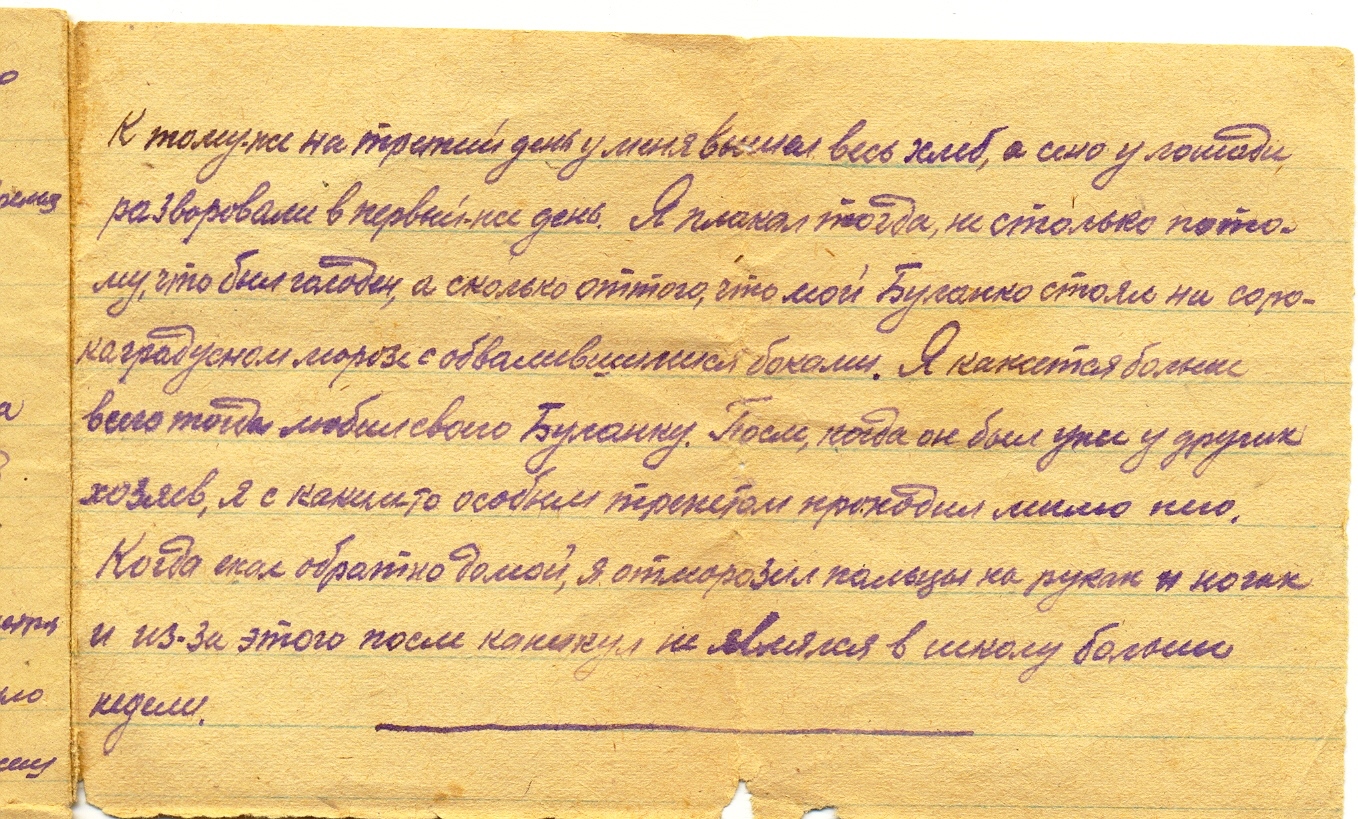 К тому-же на третий день у меня вышел весь хлеб, а сено у лошади,
разворовали в первый-же день. Я плакал тогда, не столько пото-
му, что был голоден, а сколько оттого, что мой Буланко стоял на соро-
каградусном морозе с обвалившимися боками. Я кажется больше
всего тогда любил своего Буланку. После, когда он был уже у других
хозяев, я с каким-то особым трепетом проходил мимо него.
Когда ехал обратно домой, я отморозил пальцы на руках и ногах
и из-за этого после каникул не являлся в школу больше
недели.